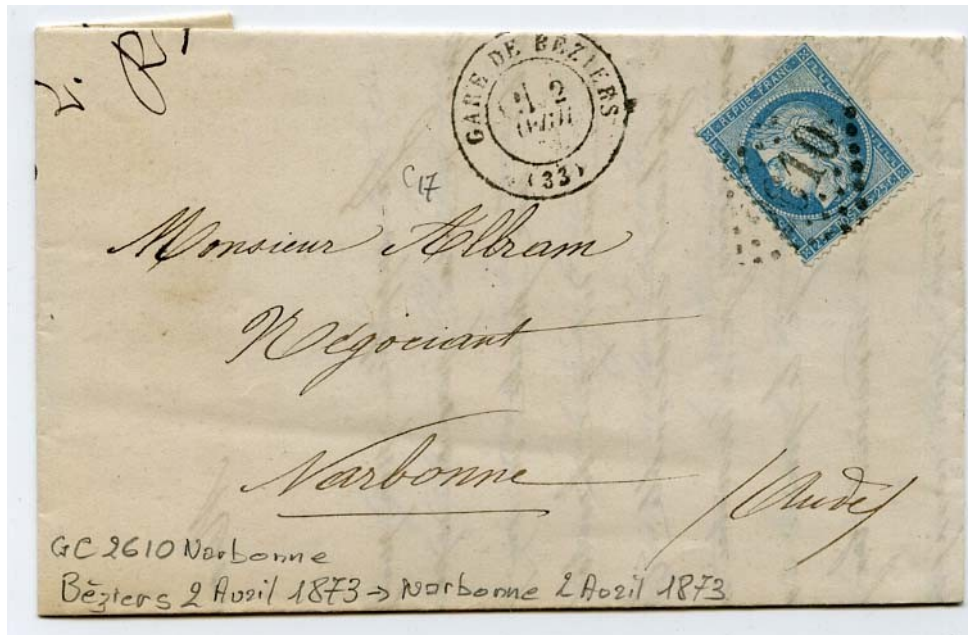 GARE DE BÉZIERS
2
(33)
REPUB. FRANC.
C17
Monsieur Allram
Négociant
Narbonne
(Aude)
GC 2610 Narbonne
Béziers 2 Avril 1873 → Narbonne 2 Avril 1873